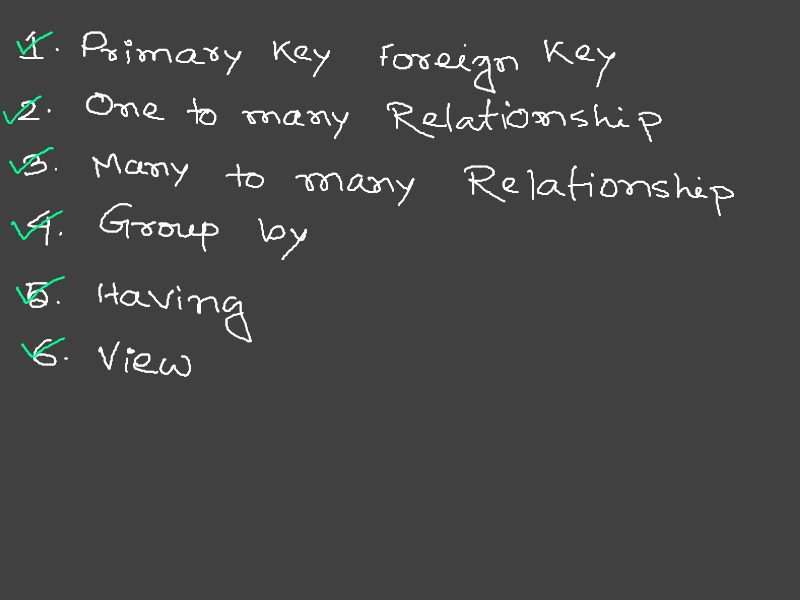 1. Primary Key Foreign Key
2. One to many Relationship
3. Many to many Relationship
4. Group by
5. Having
6. View